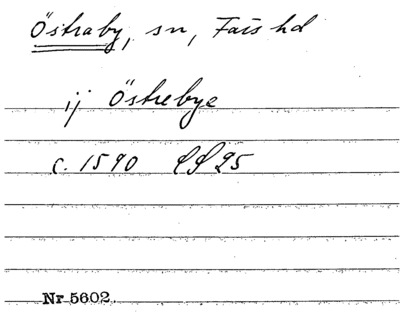 Östraby, sn, Färs hd
ij Östrebye
c. 1590 LS 25
Nr 5602.